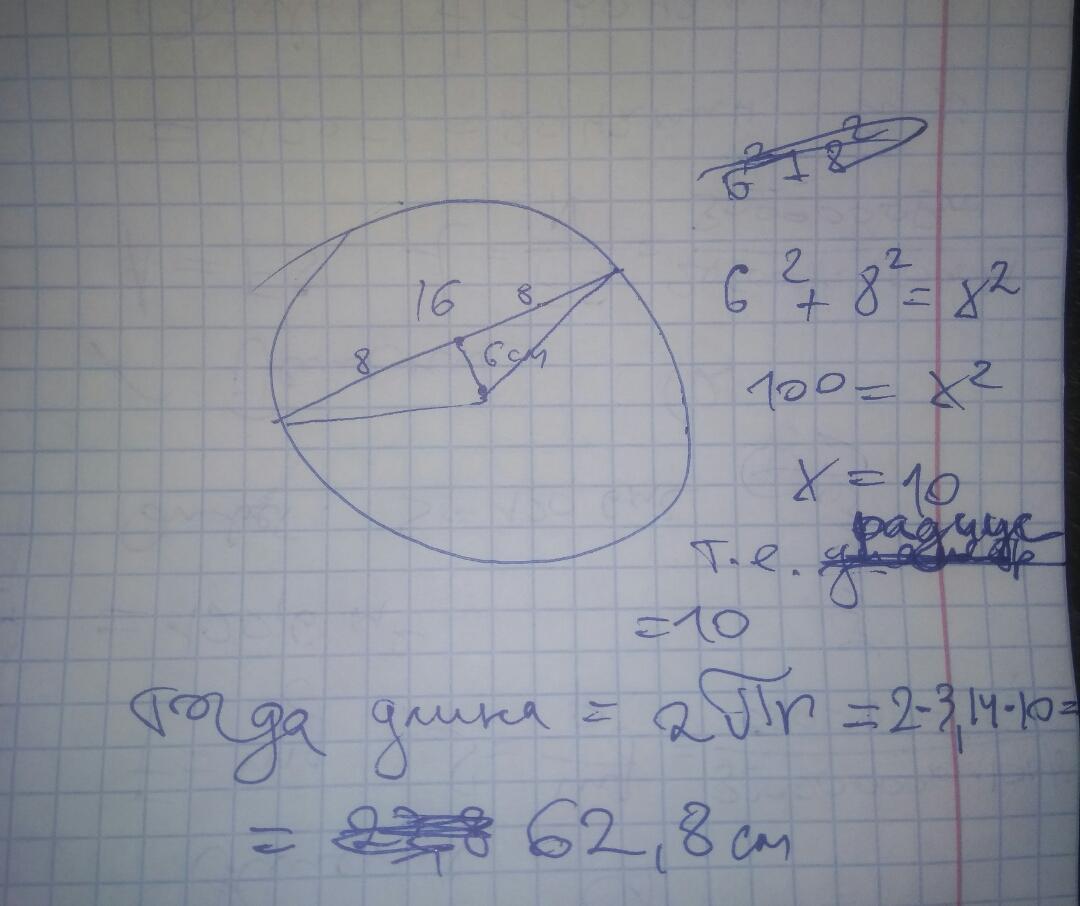 6² + 8²
16
8
8
6 см
6² + 8² = x²
100 = x²
x = 10
т.е. радиус
= 10
Тогда длина = 2πr = 2·3,14·10 =
= 62,8 см